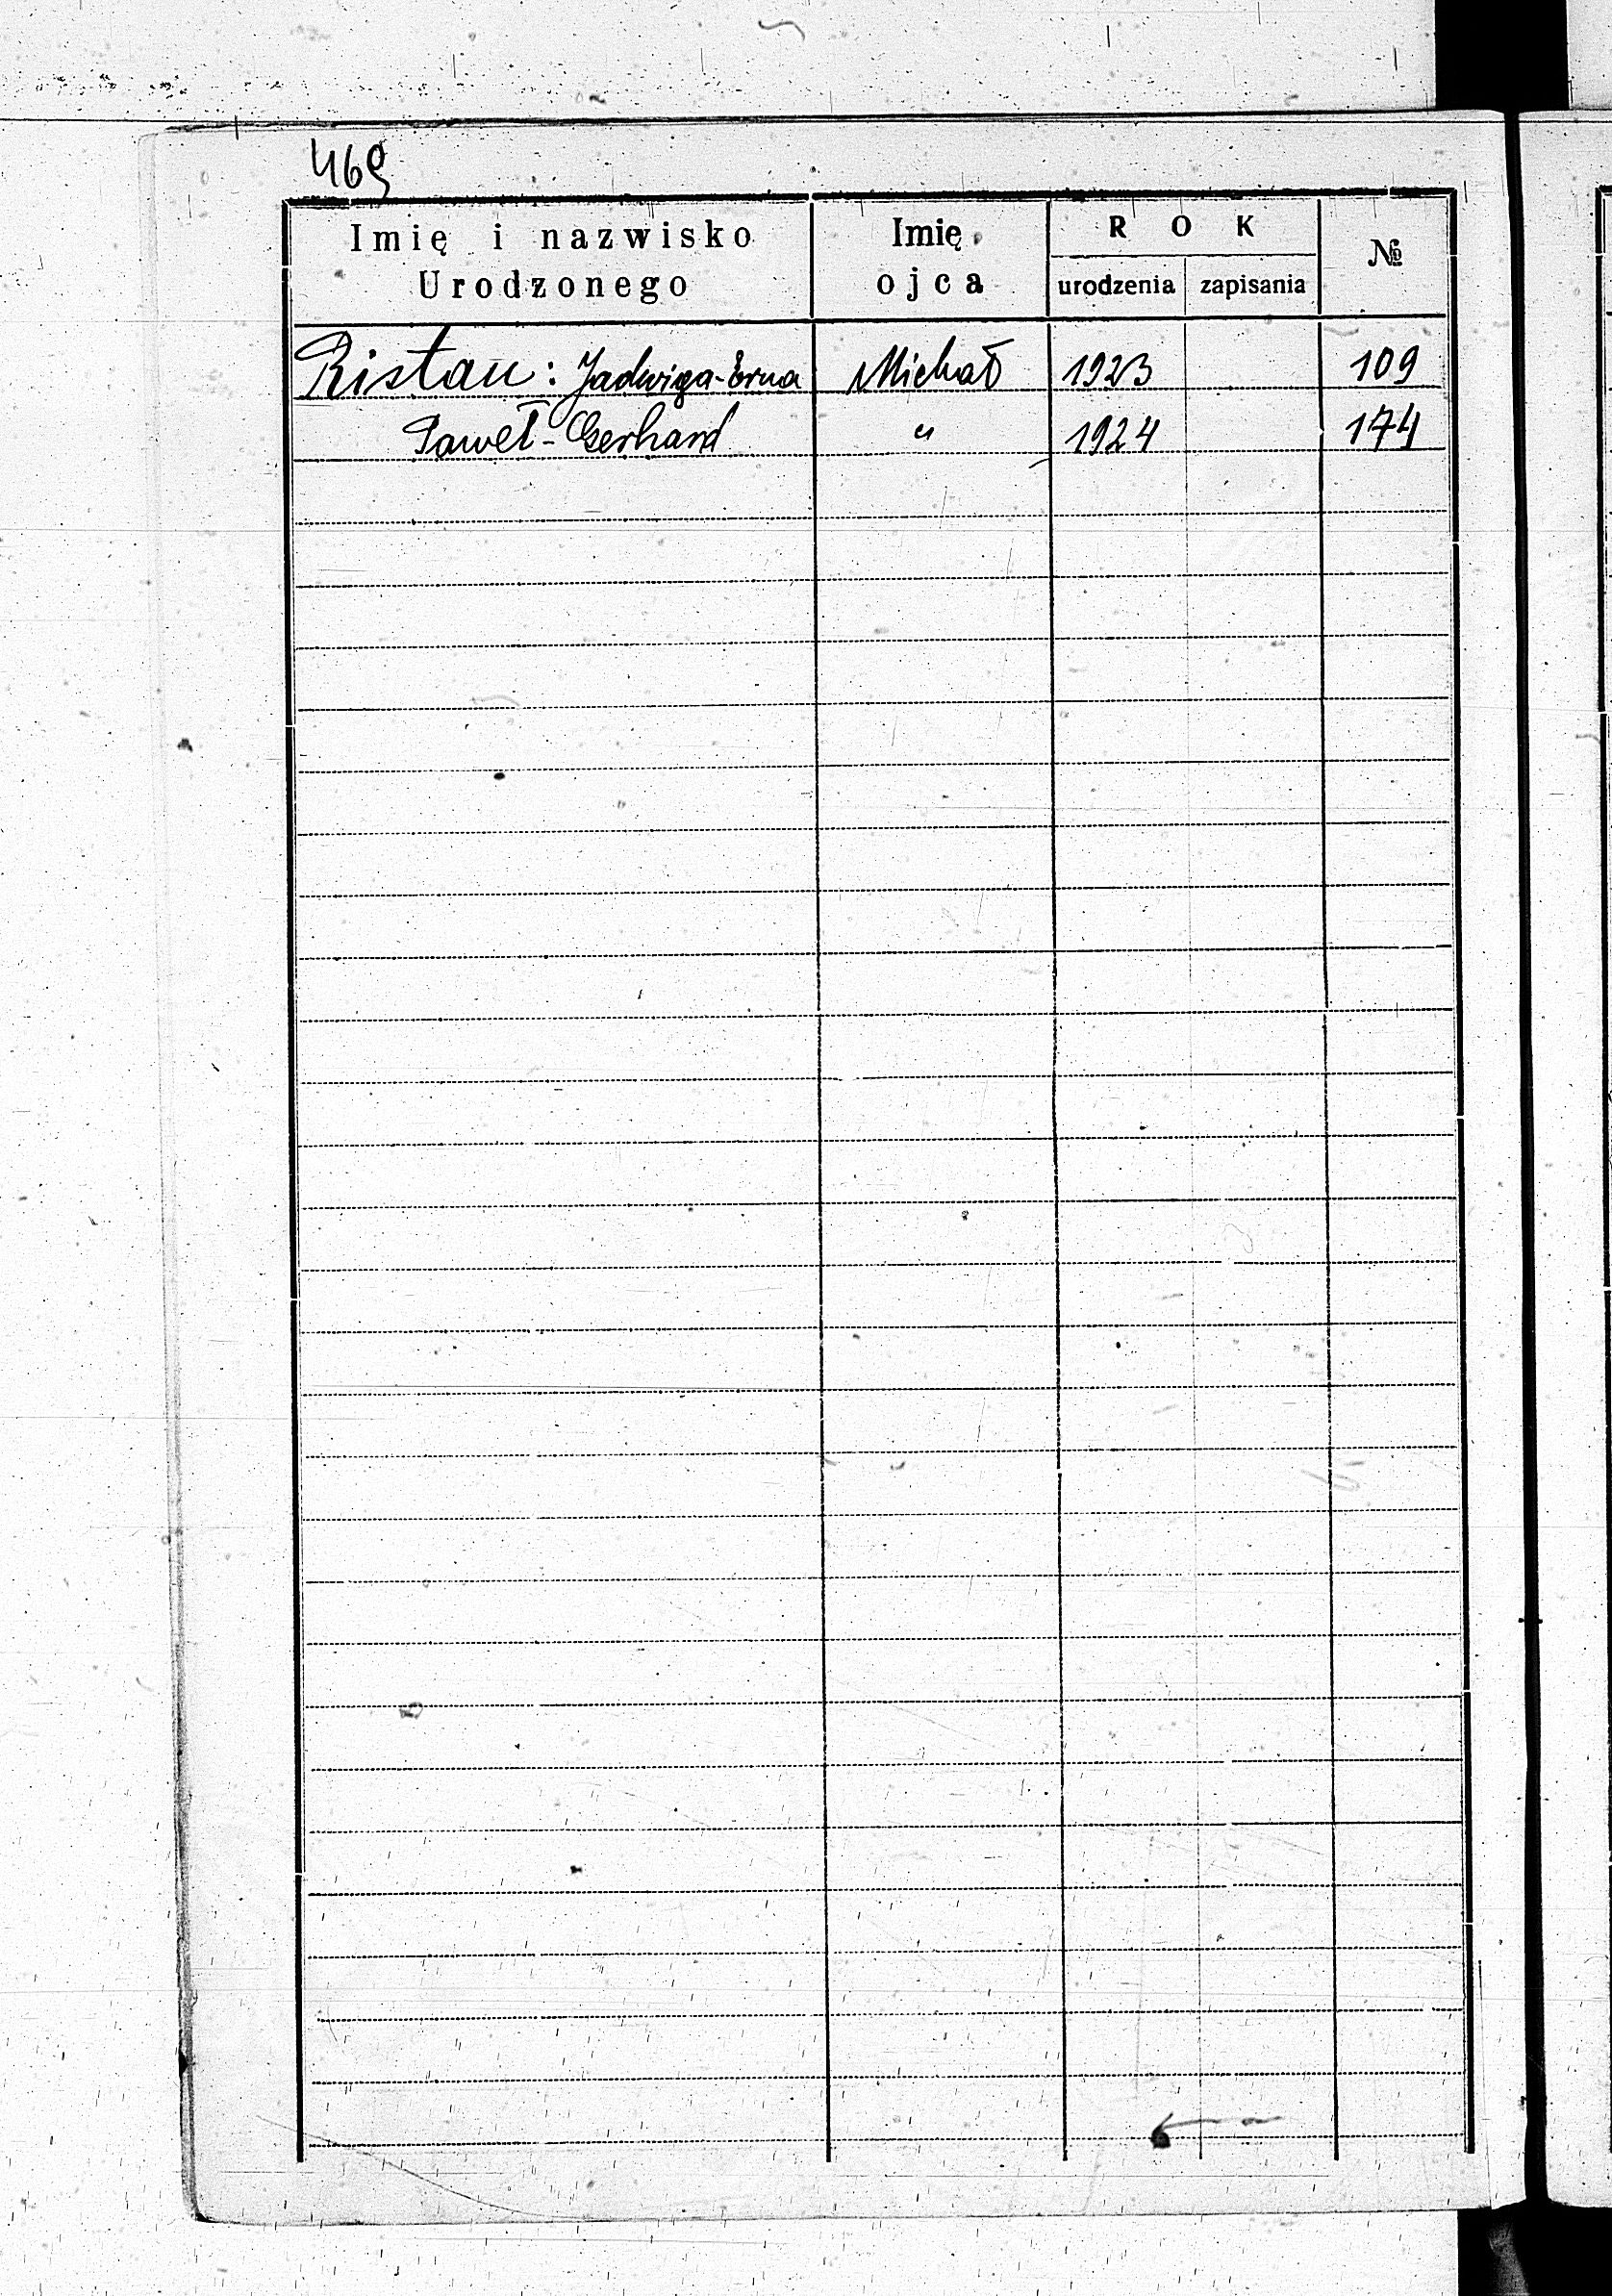 469
Imię i nazwisko Urodzonego Imię ojca ROK urodzenia zapisania №
Ristau: Jadwiga-Erna Michał 1923 109
Paweł-Gerhard " 1924 174